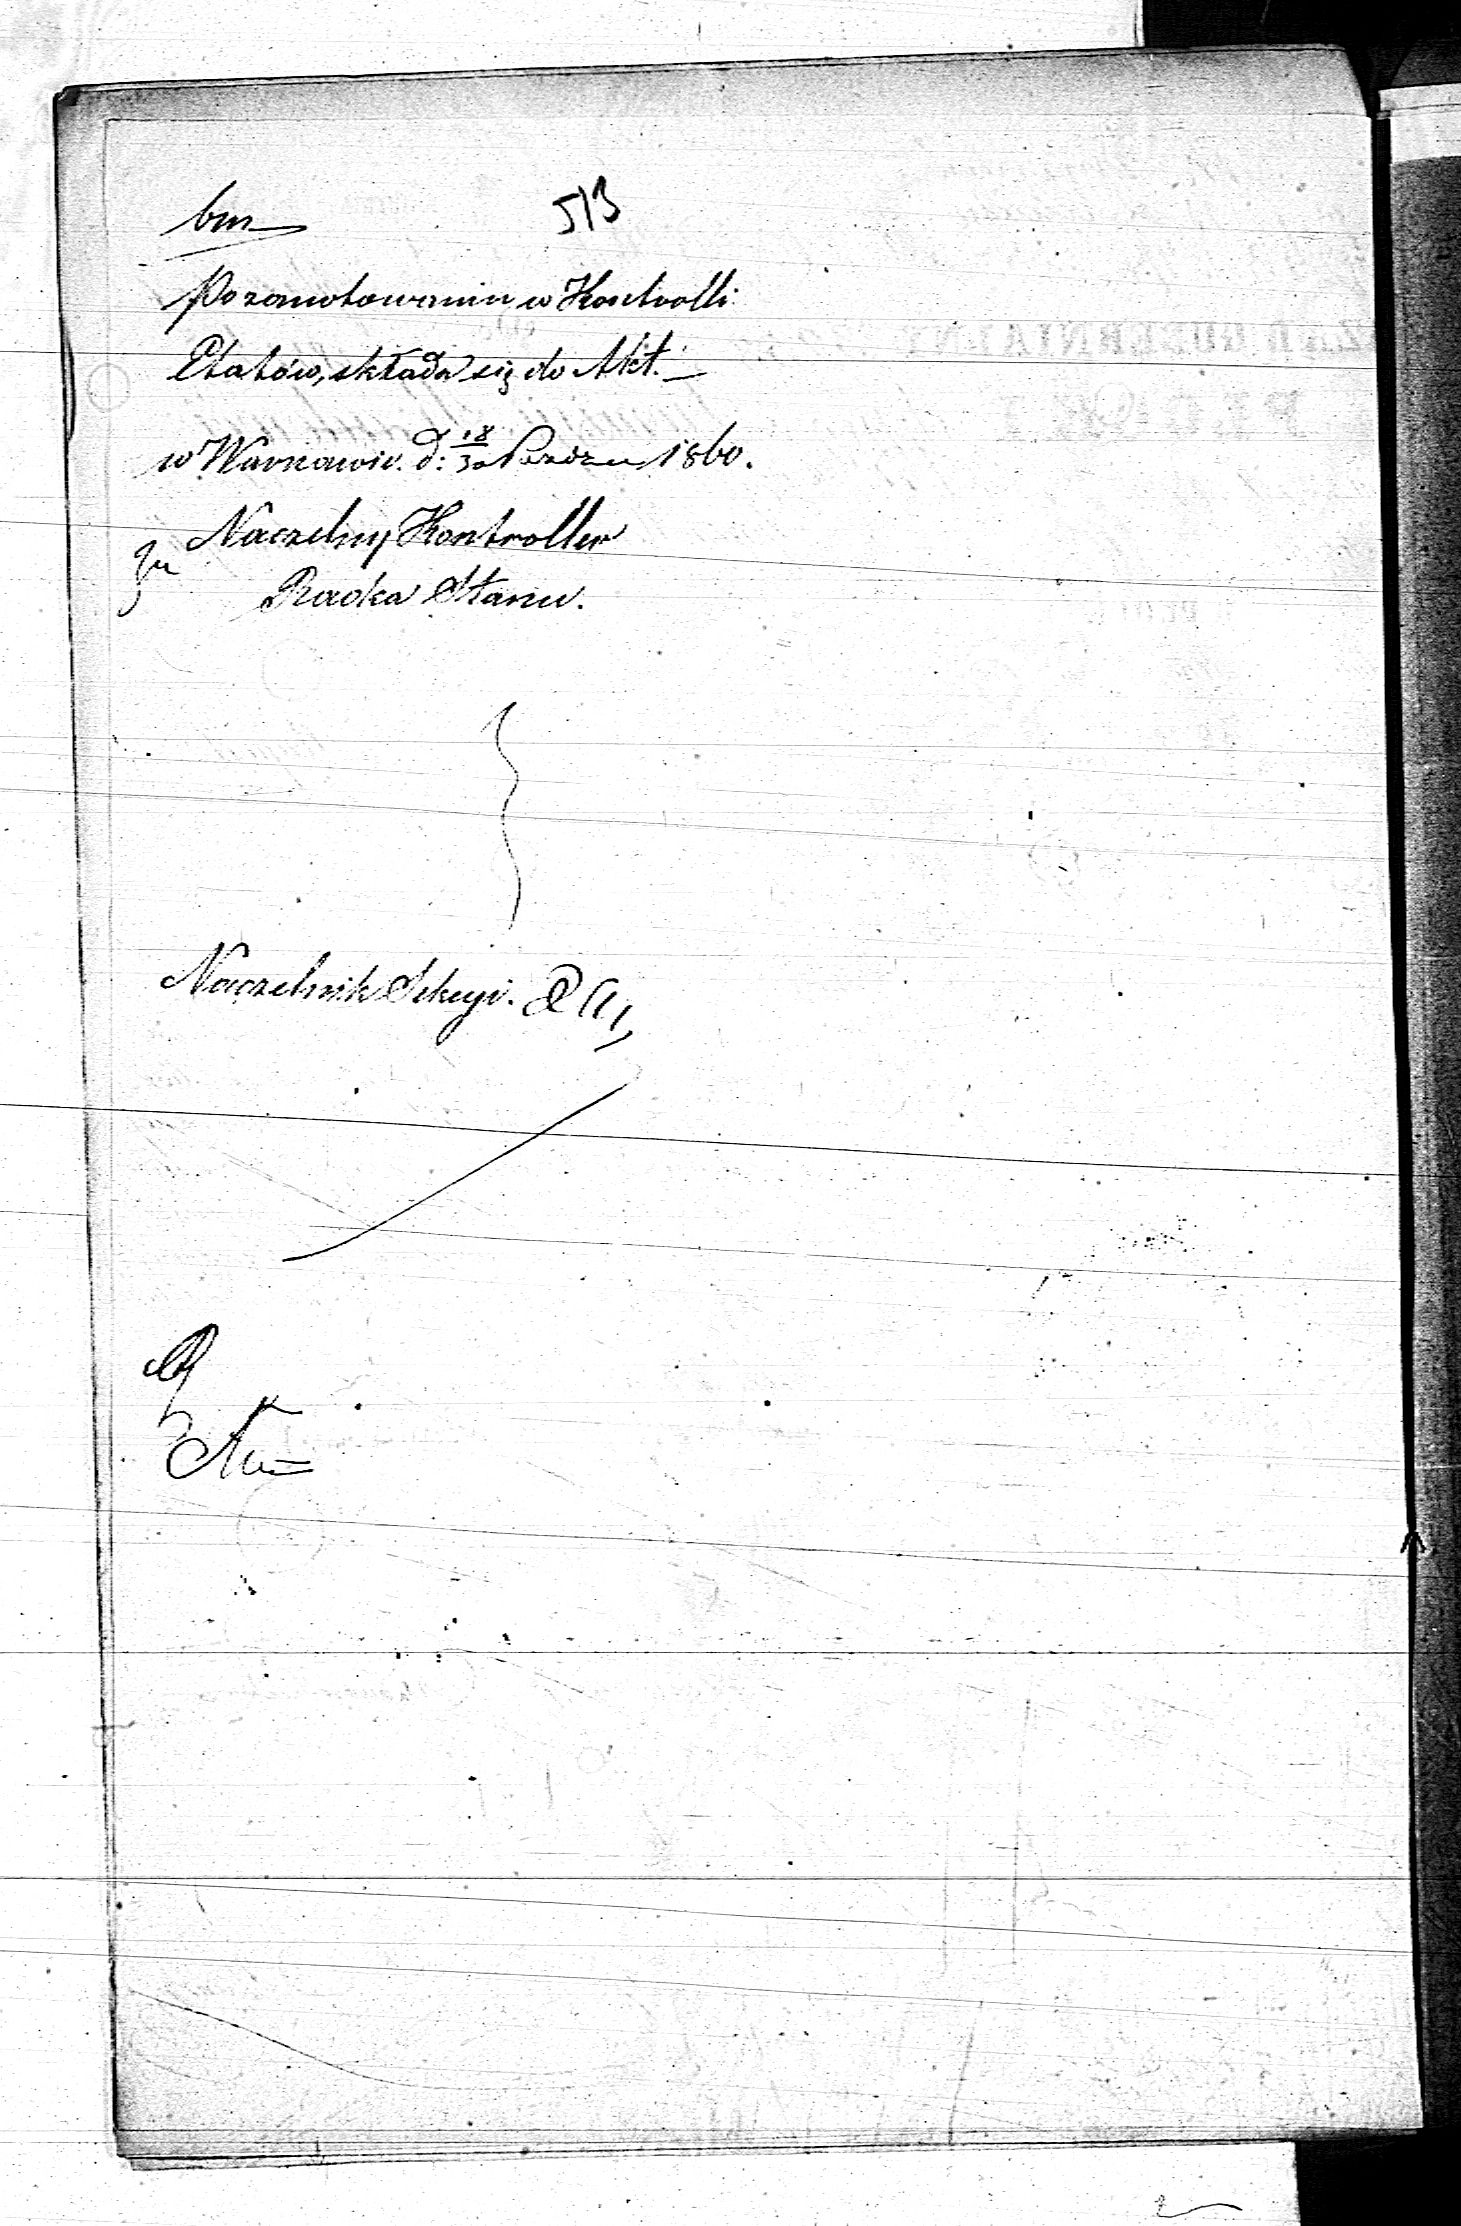 bm 513
Po zanotowaniu w Kontrolli
Etatów, składa się do Akt. —
w Warszawie. d: 18/30 Paźdz. 1860.
Naczelny Kontroller
Radca Stanu.
Naczelnik Sekcyi.